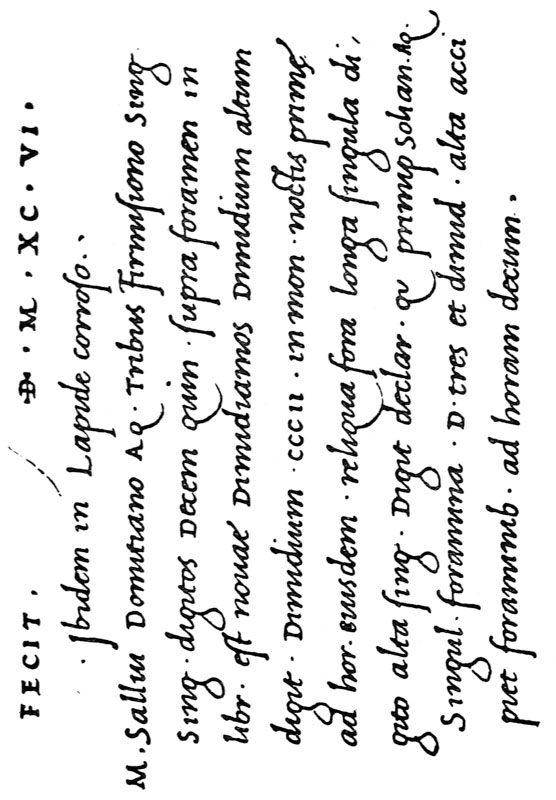 FECIT. D. M. XC. VI.
. Ibidem in Lapide corroso.
M. Sallui Domitiano AQ. Tribus Firmisiono Sing
Sing. digitos Decem quin. supra foramen in
libr. est nouae Dimidiamos Dimidium altum
digit. Dimidium. CCCII. in mon. noctis prime
ad hor. eiusdem. reliqua fora longa singula di,
gito alta sing. Digit declar. qu primup Iohan. AQ.
Singul. foramina. D. tres et dimid. alta acci
piet foraminib. ad horam decum.